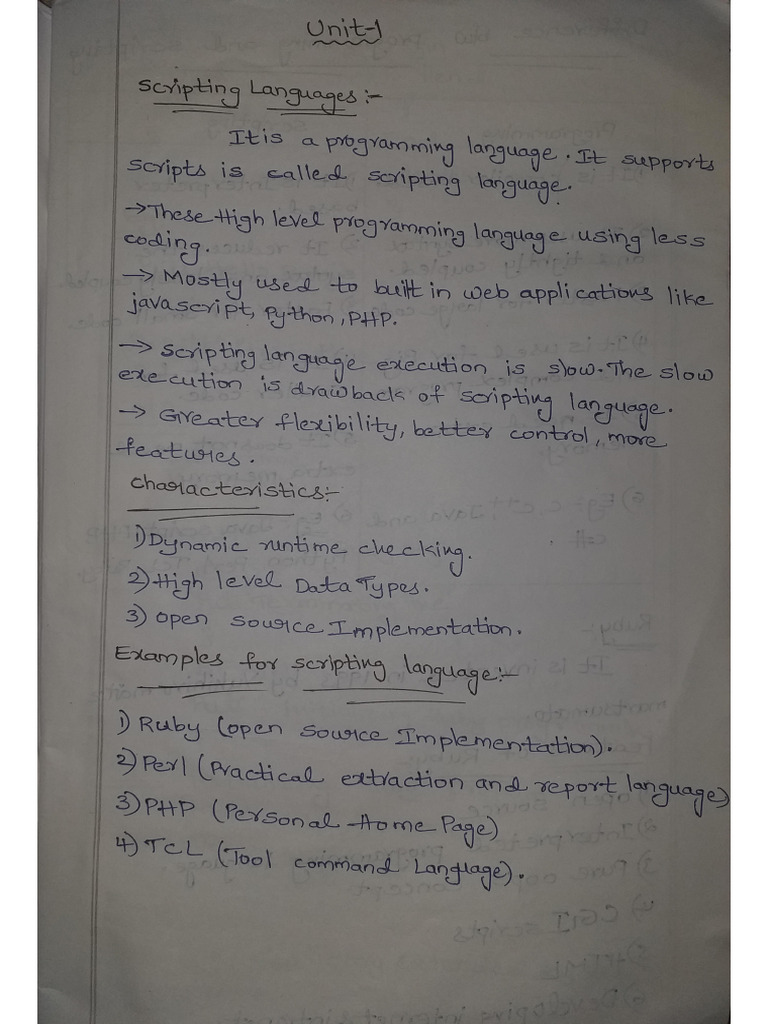 Unit-1
Scripting Languages:-
It is a programming language. It supports
scripts is called scripting language.
→These High level programming language using less
coding.
→ Mostly used to built in web applications like
javascript, Python, PHP.
→ Scripting language execution is slow. The slow
execution is drawback of scripting language.
→ Greater flexibility, better control, more
features.
Characteristics:-
1) Dynamic runtime checking.
2) High level Data Types.
3) open source Implementation.
Examples for scripting language:-
1) Ruby (open source Implementation).
2) Perl (Practical extraction and report language)
3) PHP (Personal Home Page)
4) TCL (Tool command Language).